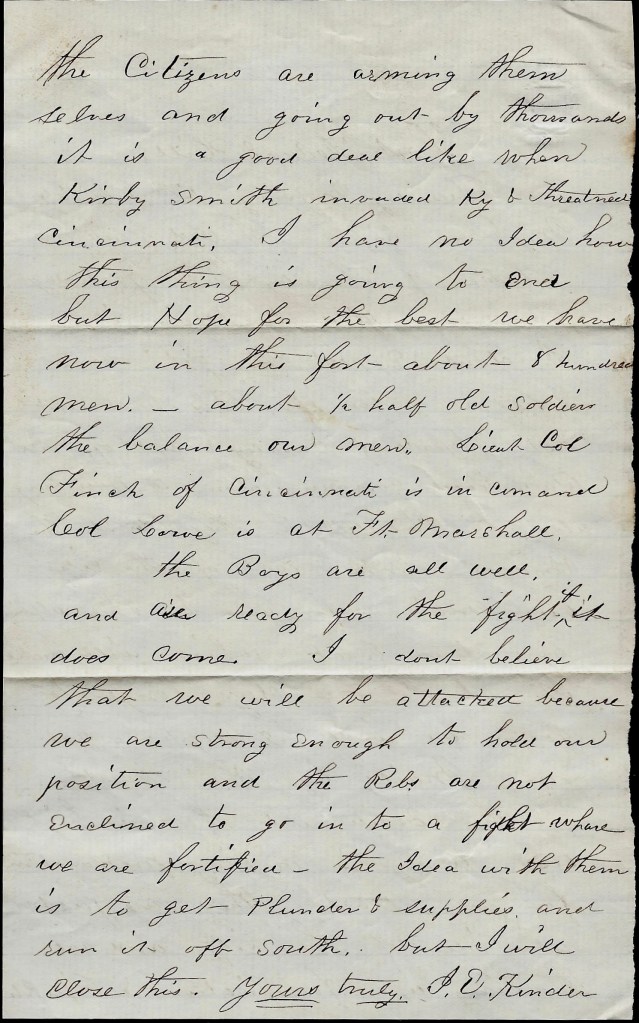 the Citizens are arming them
selves and going out by thousands
it is a good deal like when
Kirby Smith invaded Ky & Threatned
Cincinnati. I have no Idea how
this thing is going to end
but Hope for the best we have
now in this fort about 8 hundred
men. — about ½ half old soldiers
the balance our men. Lieut Col
Finch of Cincinnati is in comand
Col Lowe is at Ft. Marshall.
the Boys are all well,
and are ready for the "fight" if it
does come. I dont believe
that we will be attacked because
we are strong enough to hold our
position and the Rebs are not
enclined to go in to a fight whare
we are fortified — the Idea with them
is to get Plunder & supplies and
run it off South. but I will
close this. Yours truly. I. E. Kinder